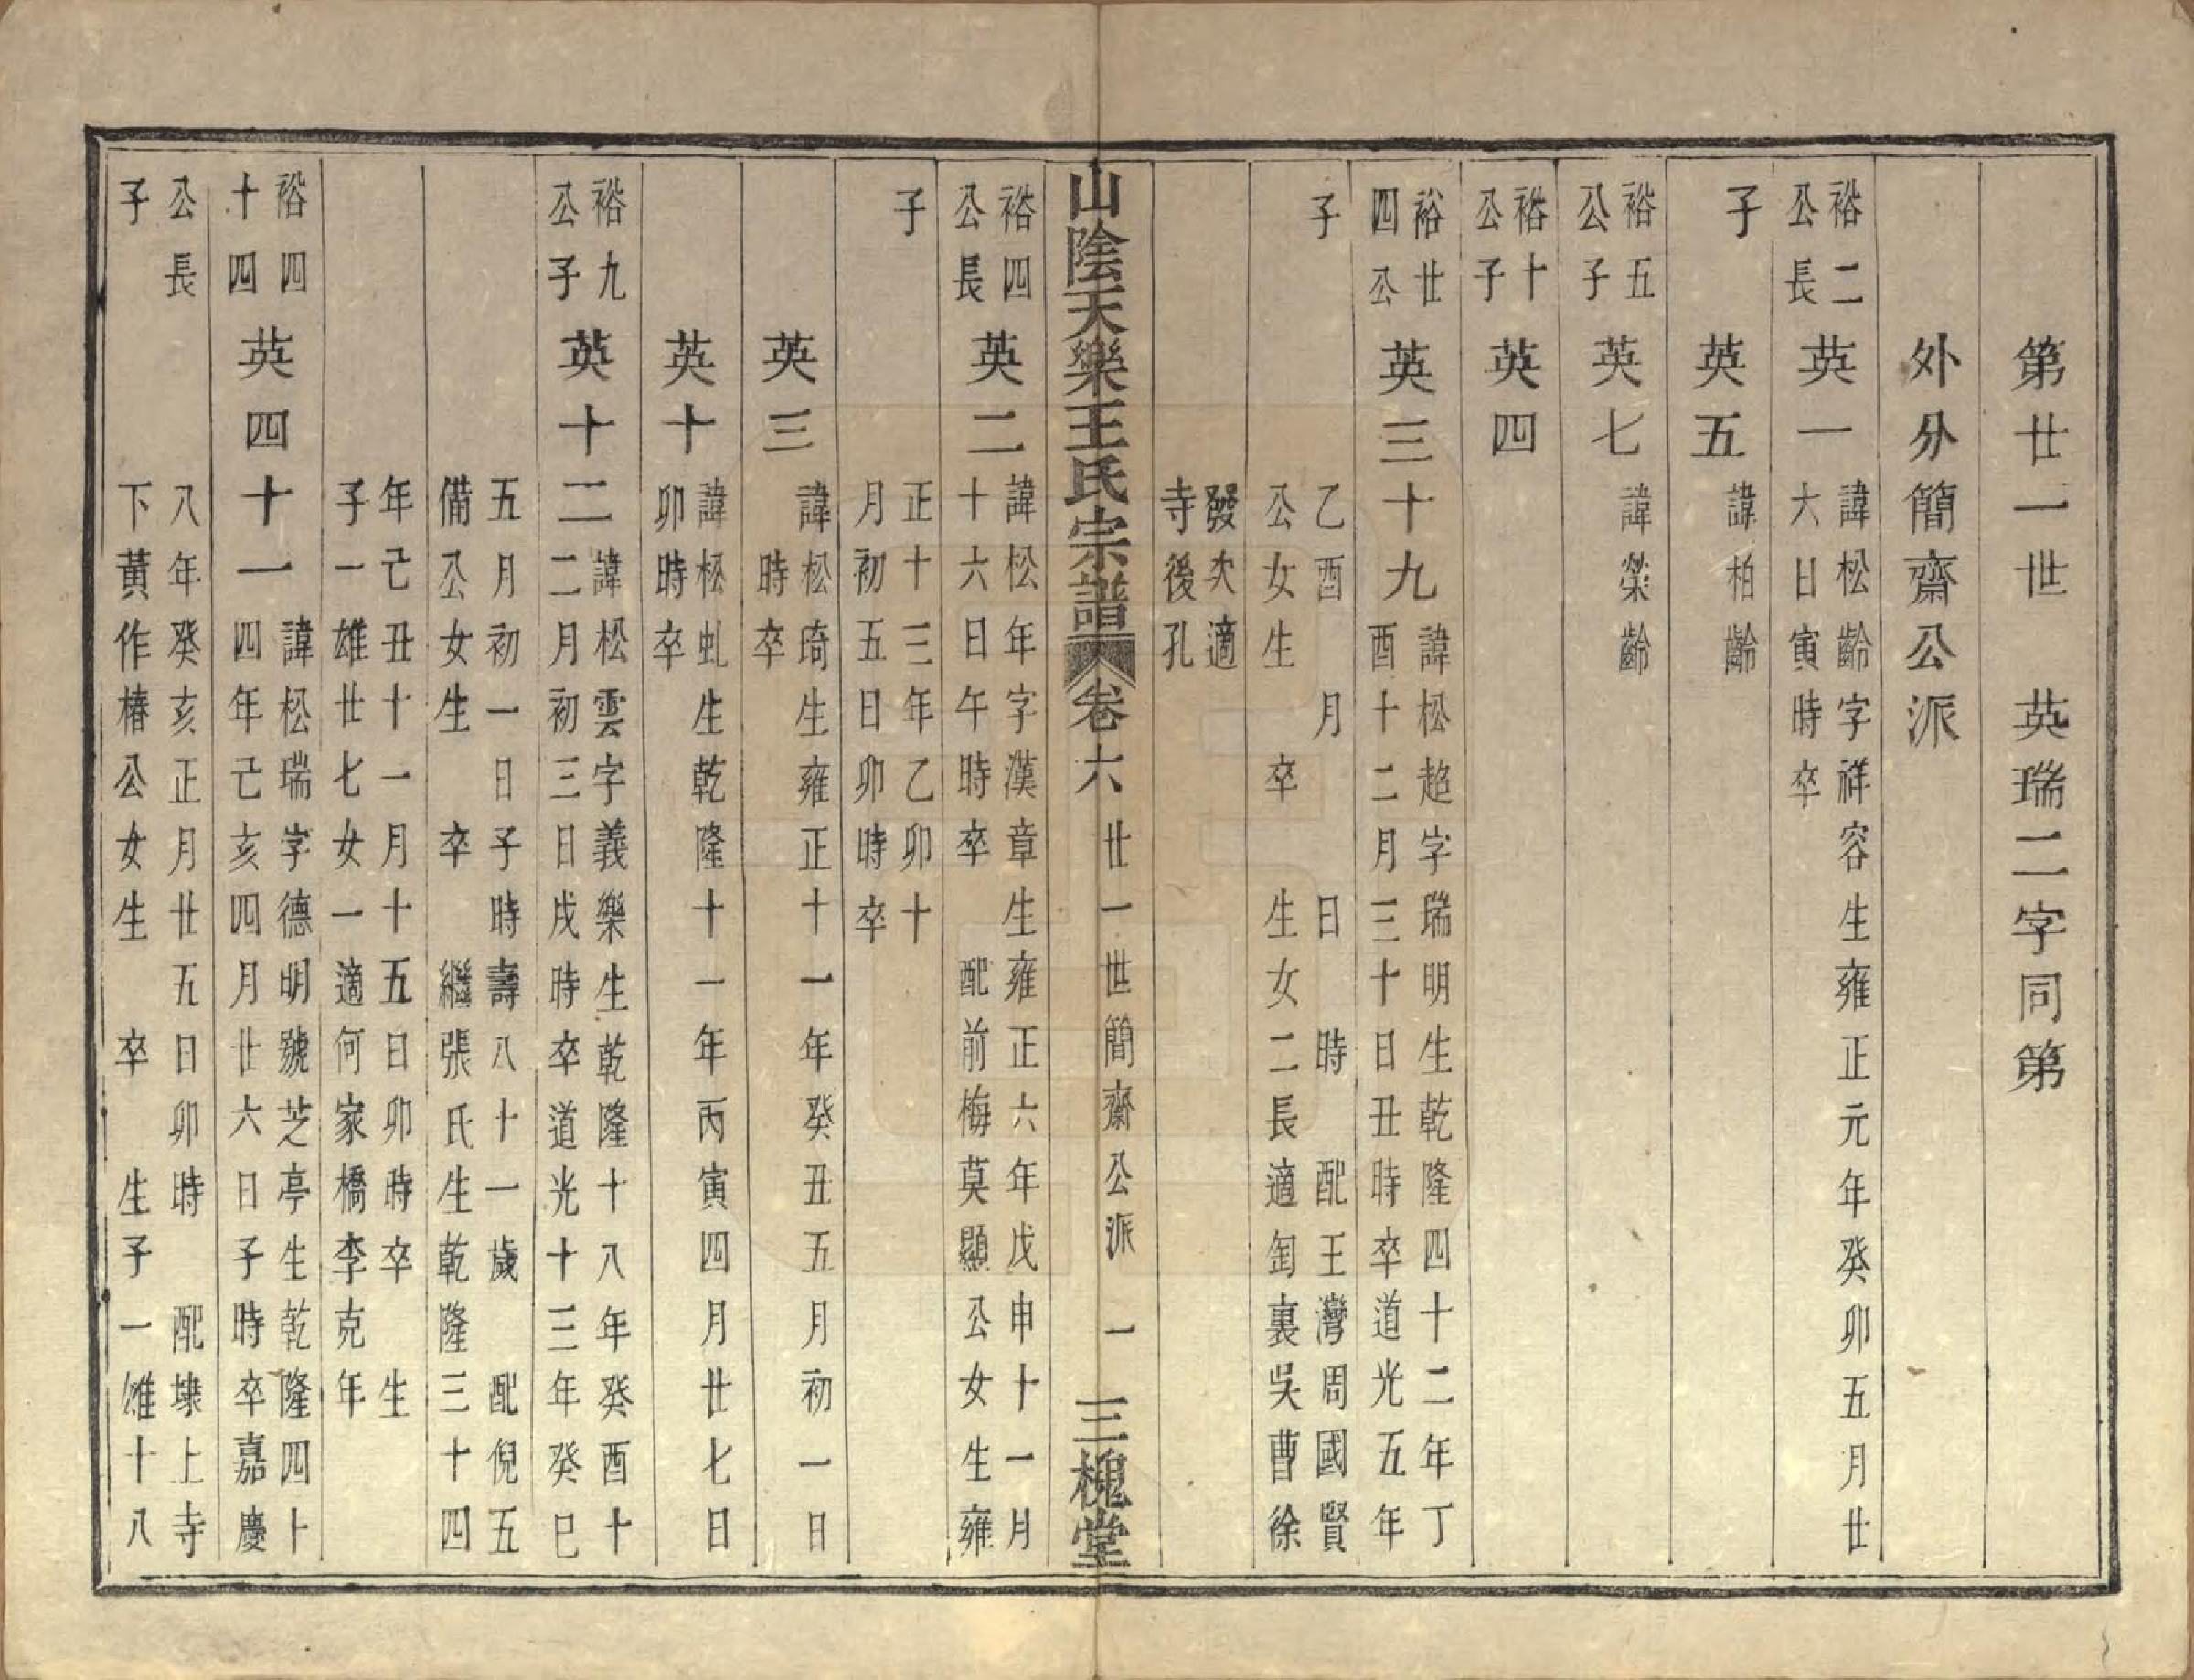 第廿一世　英瑞二字同第
外分簡齋公派
裕二
公長
英一
諱松齡字祥容生雍正元年癸卯五月廿
六日寅時卒
子
英五
諱柏齡
裕五
公子
英七
諱榮齡
裕十
公子
英四
裕廿
四公
英三十九
諱松超字瑞明生乾隆四十二年丁
酉十二月三十日丑時卒道光五年
子
乙酉　月　　日　時　配王灣周國賢
公女生　卒　生女二長適匋裏吳曹徐
發次適
寺後孔
山陰天樂王氏宗譜
卷六
廿一世簡齋公派
一
三槐堂
裕四
公長
英二
諱松年字漢章生雍正六年戊申十一月
十六日午時卒　配前梅莫顯公女生雍
子
正十三年乙卯十
月初五日卯時卒
英三
諱松琦生雍正十一年癸丑五月初一日
時卒
英十
諱松虬生乾隆十一年丙寅四月廿七日
卯時卒
裕九
公子
英十二
諱松雲字義樂生乾隆十八年癸酉十
二月初三日戌時卒道光十三年癸巳
五月初一日子時壽八十一歲　配倪五
備公女生　卒　繼張氏生乾隆三十四
年己丑十一月十五日卯時卒　生
子一雄廿七女一適何家橋李克年
裕四
十四
英四十一
諱松瑞字德明號芝亭生乾隆四十
四年己亥四月廿六日子時卒嘉慶
公長
子
八年癸亥正月廿五日卯時　配埭上寺
下黃作椿公女生　卒　生子一雄十八